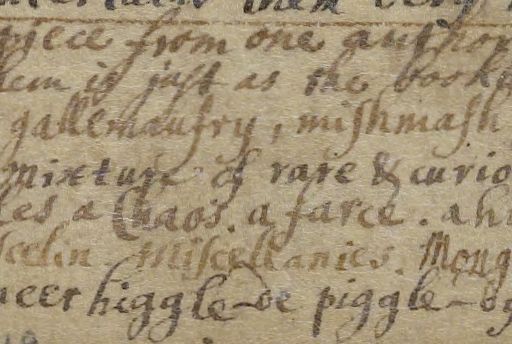 them very
piece from one author
lem is just as the book
gallemaufry, mishmash
mixture of rare & curio
les a Chaos. a farce. a h
scelin miscellanies. Mong
meer higgle-de piggle-dy